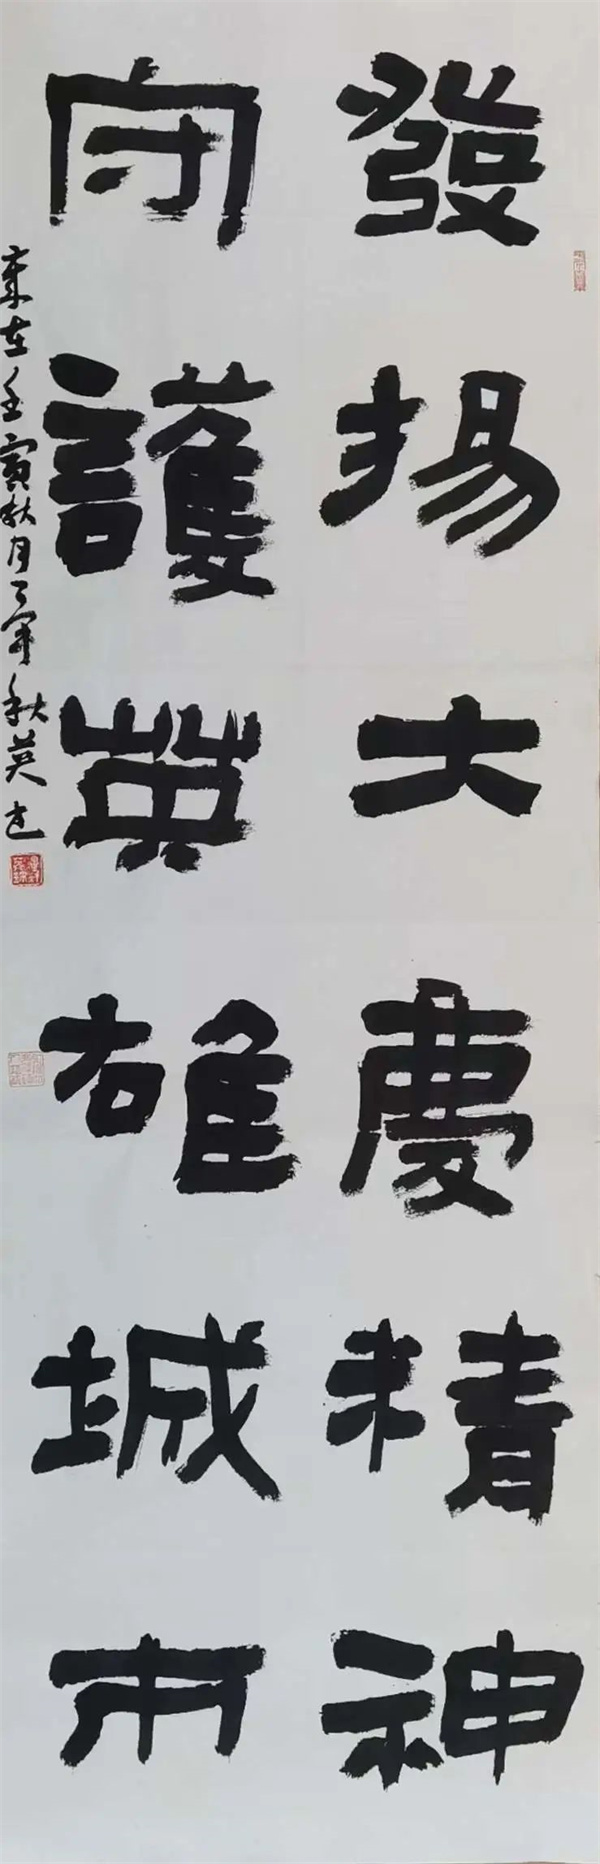 發揚大慶精神
守護英雄城市
歲在壬寅秋月 秋英書